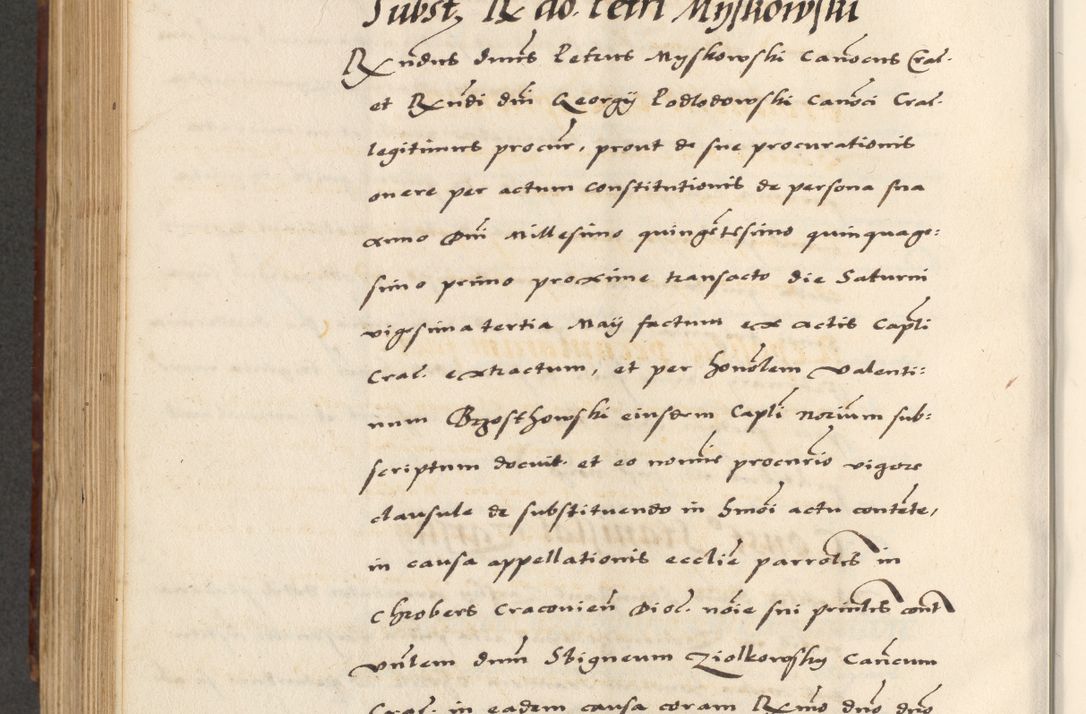 Subst. R do. Petri Myskowski
Rxndus dnus Petrus Myskowski Canocus Crac.
et Rxndi dni Georgy Podlodowski Canoci Crac.
legitimus procur, prout de sue procurationis
onere per actum constitutionis de persona sua
anno Dni Millesimo quingetesimo quinquage:
simo primo proxime transacto die Saturni
vigesima tertia Maij factum ex actis Capli
Crac. extractum, et per honolem Valenti:
num Brzosthowski eiusdem Capli notrium sub:
scriptum docuit. et eo nomie procurio vigore
clausule de substituendo in hmoi actu contete,
in causa appellationis ecclie parrolis in
Chrobers Cracovien Dioc. noie sui prinlis cont
vnlem dnum Sbigneum Ziolkowsky Cancum
Crac. in eadem causa coram Rxmo dno dno